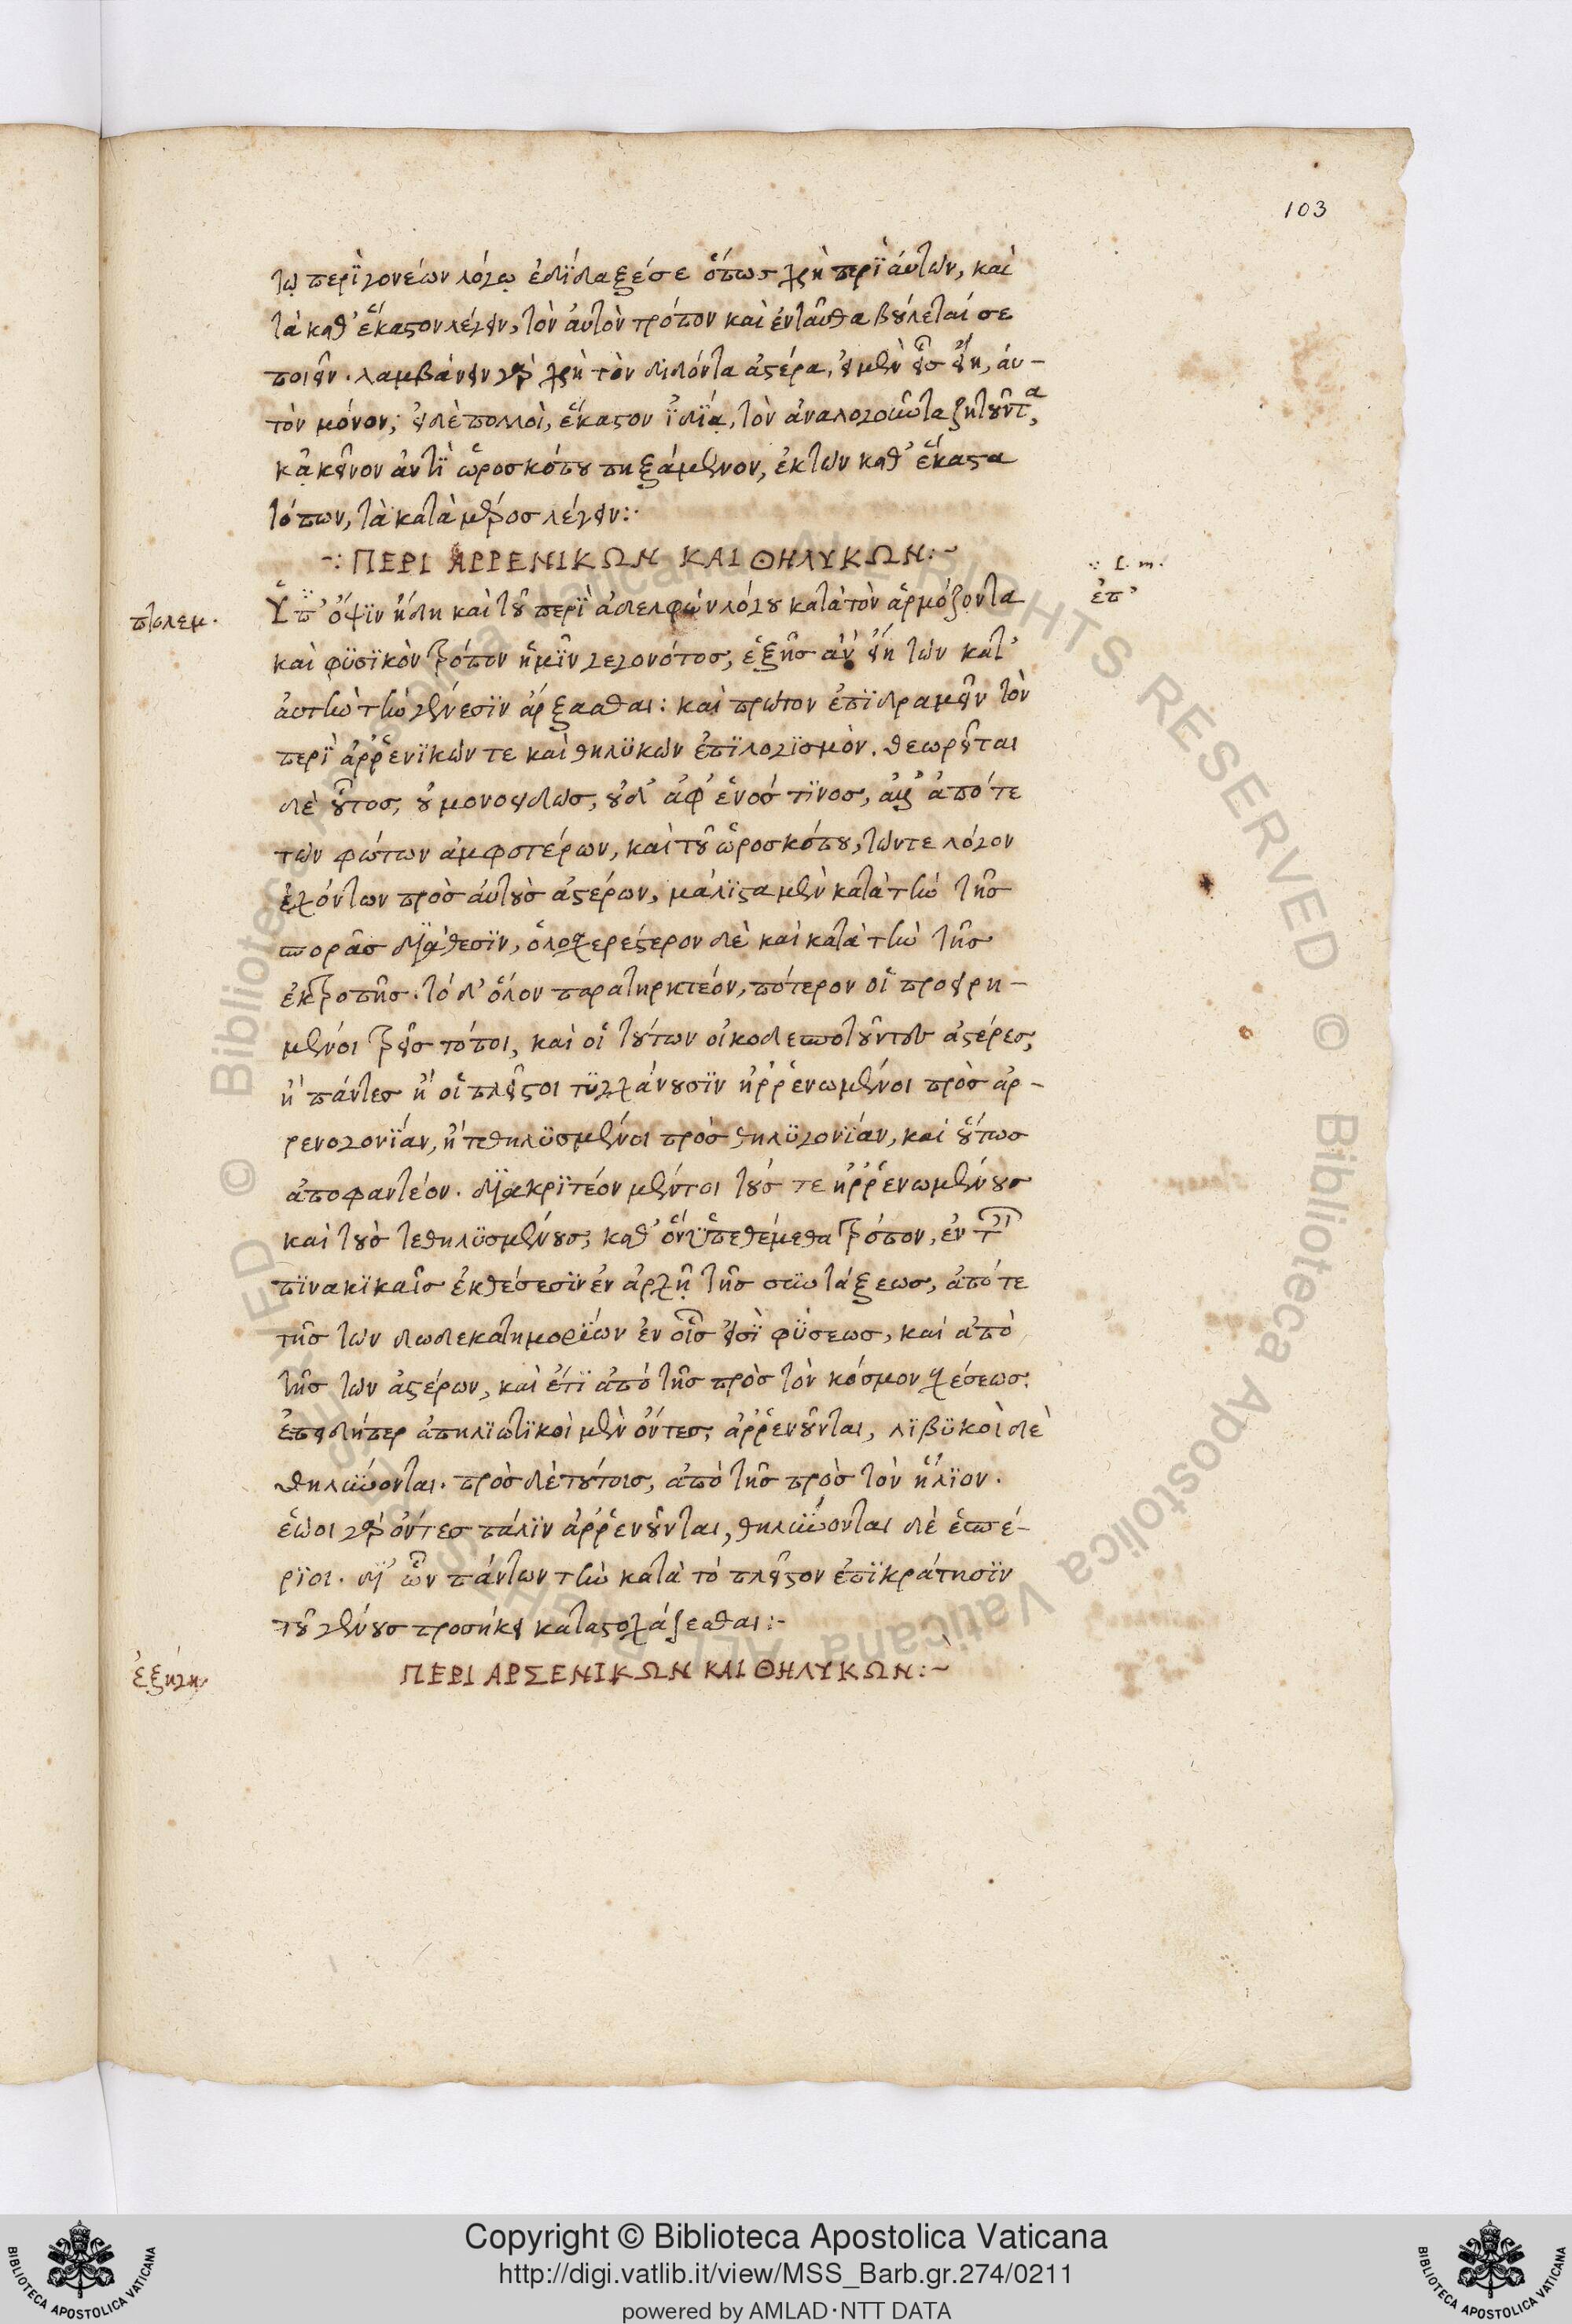 103
τῷ περὶ γονέων λόγῳ ἐδίδαξέ σε ὅπως χρὴ περὶ ἀυτῶν, καὶ
τὰ καθ᾽ ἕκαστον λέγειν, τὸν ἀυτὸν τρόπον καὶ ἐνταῦθα βούλεταί σε
ποιεῖν. λαμβάνειν γὰρ χρὴ τὸν διδόντα ἀστέρα, εἰ μὲν εἷς εἴη, ἀυ-
τὸν μόνον, εἰ δὲ πολλοὶ, ἕκαστον ἰδίᾳ, τὸν ἀναλογοῦντα ζητοῦντα,
κᾀκεῖνον ἀντὶ ὡροσκόπου πηξάμενον, ἐκ τῶν καθ᾽ ἕκαστα
τόπων, τὰ κατὰ μέρος λέγειν:·
~: ΠΕΡΙ ΑΡΡΕΝΙΚΩΝ ΚΑΙ ΘΗΛΥΚΩΝ:~
πτολεμ.
Ὑπ᾽ ὄψιν ἤδη καὶ τοῦ περὶ ἀδελφῶν λόγου κατὰ τὸν ἁρμόζοντα
ἐπ᾽
καὶ φυσικὸν τρόπον ἡμῖν γεγονότος, ἑξῆς ἂν εἴη τῶν κατ᾽
ἀυτὴν τὴν γένεσιν ἄρξασθαι: καὶ πρῶτον ἐπιδραμεῖν τὸν
περὶ ἀῤῥενικῶν τε καὶ θηλυκῶν ἐπιλογισμὸν. θεωρεῖται
δὲ οὗτος, οὐ μονοειδῶς, οὐδ᾽ ἀφ᾽ ἑνός τινος, ἀλλ᾽ ἀπό τε
τῶν φώτων ἀμφοτέρων, καὶ τοῦ ὡροσκόπου, τῶν τε λόγον
ἐχόντων πρὸς ἀυτοὺς ἀστέρων, μάλιστα μὲν κατὰ τὴν τῆς
σπορᾶς διάθεσιν, ὁλοσχερέστερον δὲ καὶ κατὰ τὴν τῆς
ἐκτροπῆς. τὸ δ᾽ ὅλον παρατηρητέον, πότερον οἱ προειρη-
μένοι τρεῖς τόποι, καὶ οἱ τούτων οἰκοδεσποτοῦντες ἀστέρες,
ἢ πάντες ἢ οἱ πλεῖστοι τυγχάνουσιν ἠῤῥενωμένοι πρὸς ἀρ-
ρενογονίαν, ἢ τεθηλυσμένοι πρὸς θηλυγονίαν, καὶ οὕτως
ἀποφαντέον. διακριτέον μέντοι τούς τε ἠῤῥενωμένους
καὶ τοὺς τεθηλυσμένους, καθ᾽ ὃν ὑπεθέμεθα τρόπον, ἐν τ
πινακικαῖς ἐκθέσεσιν ἐν ἀρχῇ τῆς συντάξεως, ἀπό τε
τῆς τῶν δωδεκατημορίων ἐν οἷς εἰσὶ φύσεως, καὶ ἀπὸ
τῆς τῶν ἀστέρων, καὶ ἔτι ἀπὸ τῆς πρὸς τὸν κόσμον σχέσεως.
ἐπειδήπερ ἀπηλιωτικοὶ μὲν ὄντες, ἀῤῥενοῦνται, λιβυκοὶ δὲ
θηλύνονται. πρὸς δὲ τούτοις, ἀπὸ τῆς πρὸς τὸν ἥλιον.
ἑῷοι γὰρ ὄντες πάλιν ἀῤῥενοῦνται, θηλύνονται δὲ ἑσπέ-
ριοι. δι᾽ ὧν πάντων τὴν κατὰ τὸ πλεῖστον ἐπικράτησιν
τοῦ γένους προσήκει καταστοχάζεσθαι:-
ἐξήγη
ΠΕΡΙ ΑΡΣΕΝΙΚΩΝ ΚΑΙ ΘΗΛΥΚΩΝ:~
© Biblioteca Apostolica Vaticana ALL RIGHTS RESERVED © Biblioteca Apostolica Vaticana
BIBLIOTECA APOSTOLICA VATICANA
Copyright © Biblioteca Apostolica Vaticana
http://digi.vatlib.it/view/MSS_Barb.gr.274/0211
powered by AMLAD·NTT DATA
BIBLIOTECA APOSTOLICA VATICANA